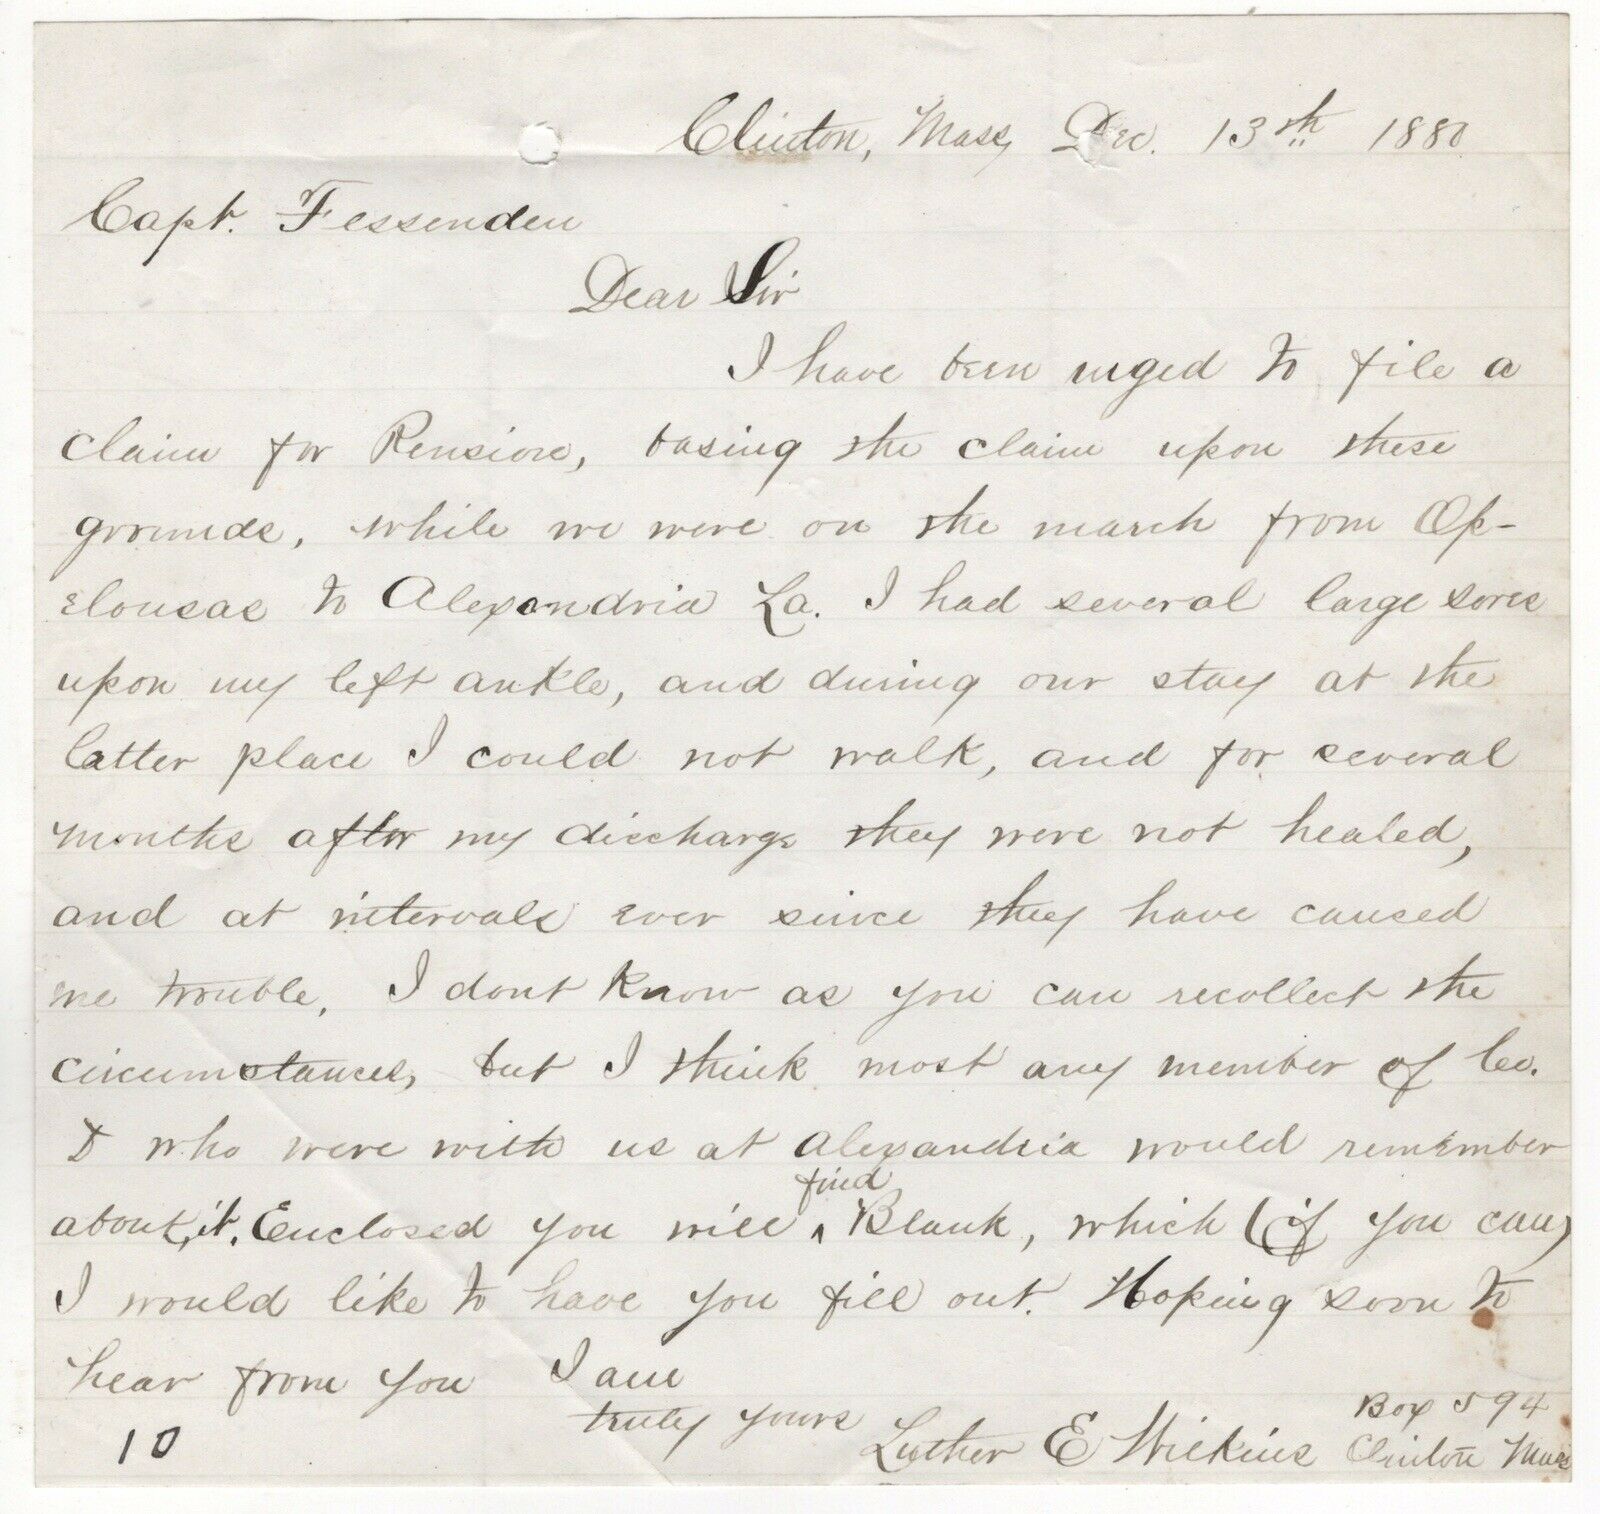 Clinton, Mass, Dec. 13th 1880
Capt. Fessenden
Dear Sir
I have been urged to file a
claim for Pension, basing the claim upon these
grounds, while we were on the march from Op-
elousas to Alexandria La. I had several large sores
upon my left ankle, and during our stay at the
latter place I could not walk, and for several
months after my discharge they were not healed,
and at intervals ever since they have caused
me trouble, I dont know as you can recollect the
circumstances, but I think most any member of Co.
I who were with us at Alexandria would remember
find
about, it. Enclosed you will ^ Blank, which (if you can)
I would like to have you fill out. Hoping soon to
hear from you I am
truly yours
Luther E Wilkins
Box 594
Clinton Mass
10